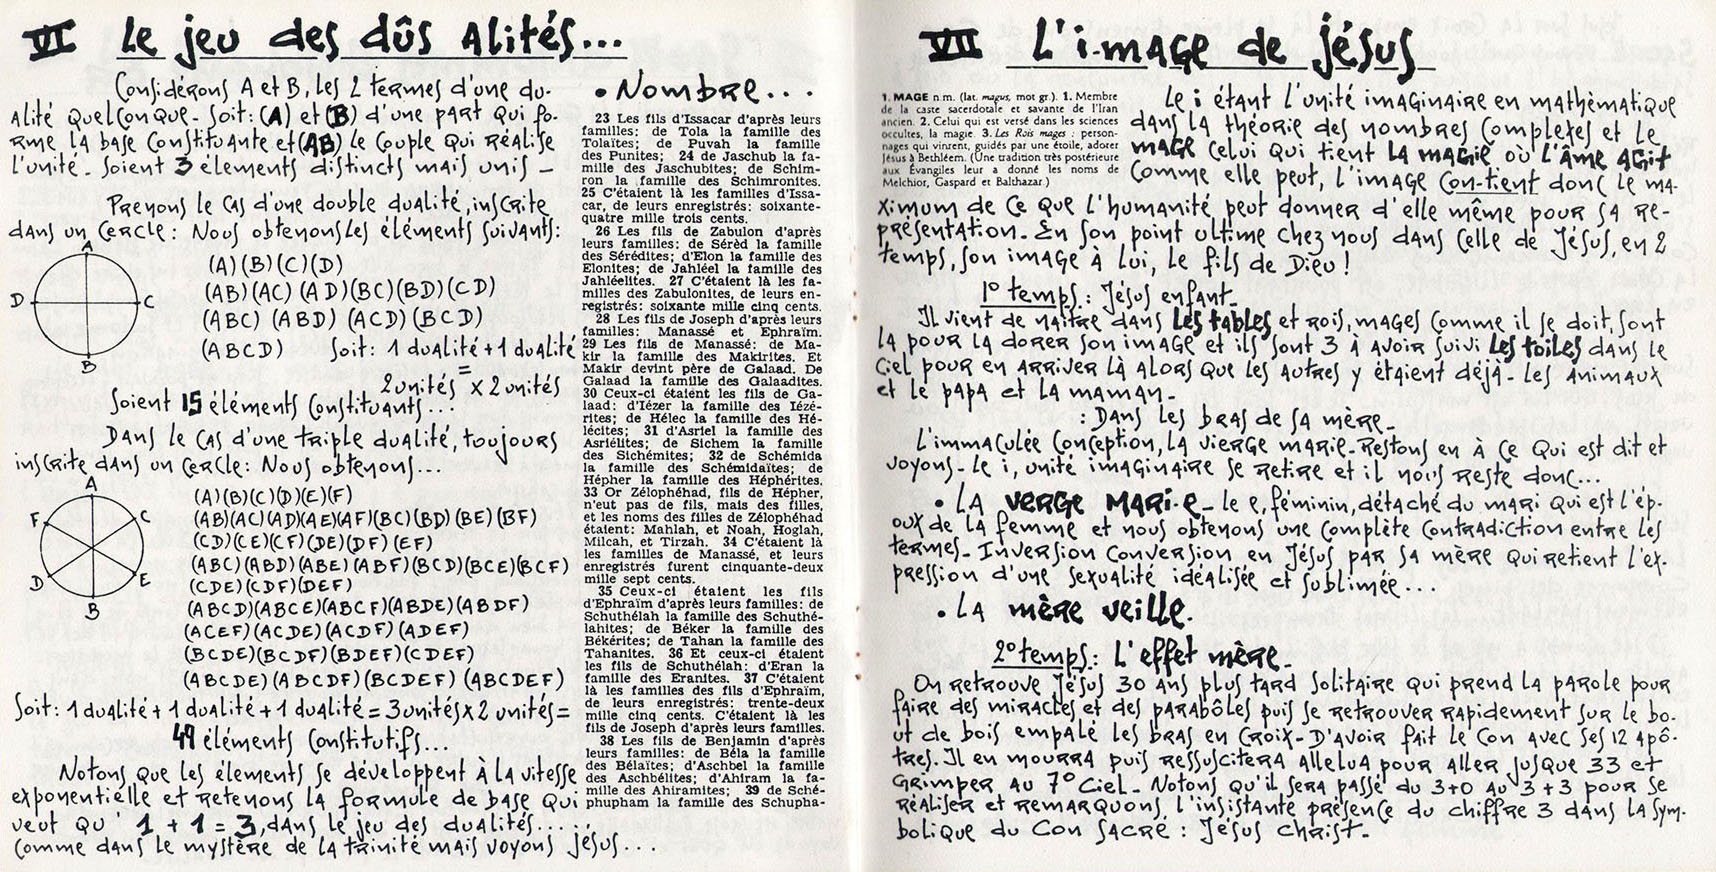 VI Le jeu des dûs Alités...
Considérons A et B, les 2 termes d'une du-
Alité quelconque. Soit: (A) et (B) d'une part qui fo-
rme la base constituante et (AB) le couple qui réalise
l'unité. Soient 3 éléments distincts mais unis –
Prenons le cas d'une double dualité, inscrite
dans un cercle: Nous obtenons les éléments suivants:
A
D C
B
(A)(B)(C)(D)
(AB)(AC)(AD)(BC)(BD)(CD)
(ABC) (ABD) (ACD) (BCD)
(ABCD) Soit: 1 dualité + 1 dualité
=
2 unités x 2 unités
Soient 15 éléments constituants...
Dans le cas d'une triple dualité, toujours
inscrite dans un cercle: Nous obtenons...
A
F C
D E
B
(A)(B)(C)(D)(E)(F)
(AB)(AC)(AD)(AE)(AF)(BC)(BD)(BE)(BF)
(CD)(CE)(CF)(DE)(DF)(EF)
(ABC)(ABD)(ABE)(ABF)(BCD)(BCE)(BCF)
(CDE)(CDF)(DEF)
(ABCD)(ABCE)(ABCF)(ABDE)(ABDF)
(ACEF)(ACDE)(ACDF)(ADEF)
(BCDE)(BCDF)(BDEF)(CDEF)
(ABCDE)(ABCDF)(BCDEF)(ABCDEF)
Soit: 1 dualité + 1 dualité + 1 dualité = 3 unités x 2 unités =
49 éléments constitutifs...
Notons que les éléments se développent à la vitesse
exponentielle et retenons la formule de base qui
veut qu' 1 + 1 = 3, dans le jeu des dualités.....
comme dans le mystère de la trinité mais voyons Jésus...
• Nombre...
23 Les fils d'Issacar d'après leurs
familles: de Tola la famille des
Tolaïtes; de Puvah la famille
des Punites; 24 de Jaschub la fa-
mille des Jaschubites; de Schim-
ron la famille des Schimronites.
25 C'étaient là les familles d'Issa-
car, de leurs enregistrés: soixante-
quatre mille trois cents.
26 Les fils de Zabulon d'après
leurs familles: de Séred la famille
des Sérédites; d'Elon la famille des
Elonites; de Jahléel la famille des
Jahléelites. 27 C'étaient là les fa-
milles des Zabulonites, de leurs en-
registrés: soixante mille cinq cents.
28 Les fils de Joseph d'après leurs
familles: Manassé et Ephraïm.
29 Les fils de Manassé: de Ma-
kir la famille des Makirites. Et
Makir devint père de Galaad. De
Galaad la famille des Galaadites.
30 Ceux-ci étaient les fils de Ga-
laad: d'Iézer la famille des Iézé-
rites; de Hélec la famille des Hé-
lécites; 31 d'Asriel la famille des
Asriélites; de Sichem la famille
des Sichémites; 32 de Schémida
la famille des Schémidaïtes; de
Hépher la famille des Héphérites.
33 Or Zélophéhad, fils de Hépher,
n'eut pas de fils, mais des filles,
et les noms des filles de Zélophéhad
étaient: Mahlah, et Noah, Hoglah,
Milcah, et Tirzah. 34 C'étaient là
les familles de Manassé, et leurs
enregistrés furent cinquante-deux
mille sept cents.
35 Ceux-ci étaient les fils
d'Ephraïm d'après leurs familles: de
Schuthélah la famille des Schuthé-
lahites; de Béker la famille des
Békérites; de Tahan la famille des
Tahanites. 36 Et ceux-ci étaient
les fils de Schuthélah: d'Eran la
famille des Eranites. 37 C'étaient
là les familles des fils d'Ephraïm,
de leurs enregistrés: trente-deux
mille cinq cents. C'étaient là les
fils de Joseph d'après leurs familles.
38 Les fils de Benjamin d'après
leurs familles: de Béla la famille
des Bélaïtes; d'Aschbel la famille
des Aschbélites; d'Ahiram la fa-
mille des Ahiramites; 39 de Sché-
phupham la famille des Schupha-
VII L'i-mage de Jésus
1. MAGE n.m. (lat. magus, mot gr.). 1. Membre
de la caste sacerdotale et savante de l'Iran
ancien. 2. Celui qui est versé dans les sciences
occultes, la magie. 3. Les Rois mages : person-
nages qui vinrent, guidés par une étoile, adorer
Jésus à Bethléem. (Une tradition très postérieure
aux Évangiles leur a donné les noms de
Melchior, Gaspard et Balthazar.)
Le i étant l'unité imaginaire en mathématique
dans la théorie des nombres complexes et le
mage celui qui tient la magie où l'âme agit
comme elle peut, l'image con-tient donc le ma-
ximum de ce que l'humanité peut donner d'elle même pour sa re-
présentation. En son point ultime chez nous dans celle de Jésus, en 2
temps, son image à lui, le fils de Dieu !
1° temps : Jésus enfant –
Il vient de naitre dans les tables et rois, mages comme il se doit, sont
là pour la dorer son image et ils sont 3 à avoir suivi les toiles dans le
ciel pour en arriver là alors que les autres y étaient déjà – les animaux
et le papa et la maman –
: Dans les bras de sa mère –
L'immaculée conception, la vierge marie – Restons en à ce qui est dit et
voyons – le i, unité imaginaire se retire et il nous reste donc...
• La verge mari-e – le e, féminin, détaché du mari qui est l'ép-
oux de la femme et nous obtenons une complète contradiction entre les
termes – Inversion conversion en Jésus par sa mère qui retient l'ex-
pression d'une sexualité idéalisée et sublimée...
• La mère veille.
2° temps : L'effet mère –
On retrouve Jésus 30 ans plus tard solitaire qui prend la parole pour
faire des miracles et des parabôles puis se retrouver rapidement sur le bo-
ut de bois empalé les bras en croix – D'avoir fait le con avec ses 12 apô-
tres. Il en mourra puis ressuscitera alleluia pour aller jusque 33 et
grimper au 7° ciel – Notons qu'il sera passé du 3+0 au 3+3 pour se
réaliser et remarquons, l'insistante présence du chiffre 3 dans la sym-
bolique du con sacré : Jésus Christ –